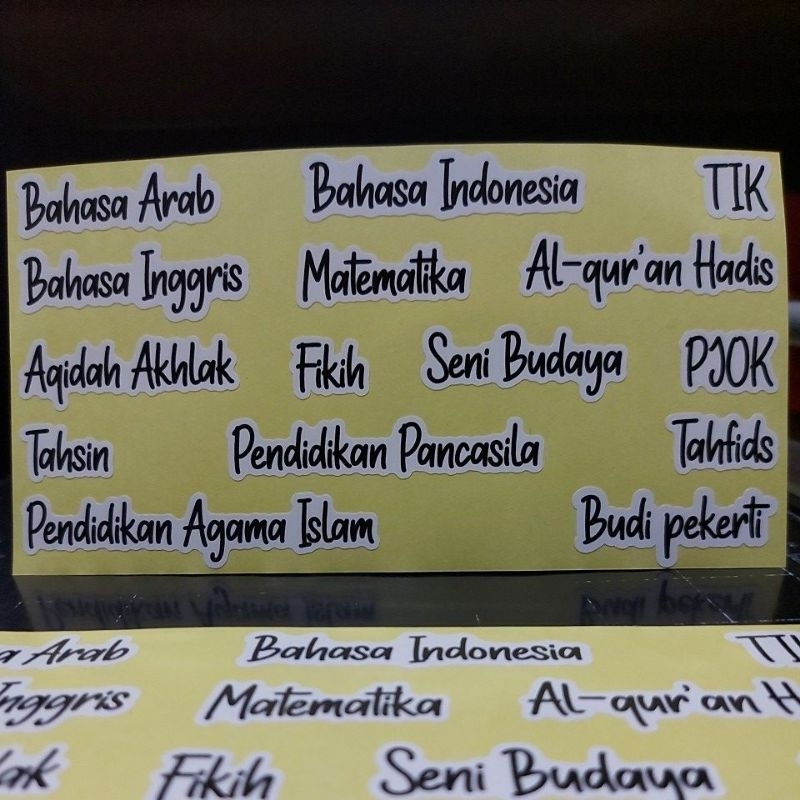 Bahasa Arab Bahasa Indonesia TIK
Bahasa Inggris Matematika Al-qur'an Hadis
Aqidah Akhlak Fikih Seni Budaya PJOK
Tahsin Pendidikan Pancasila Tahfids
Pendidikan Agama Islam Budi pekerti
Pendidikan Agama Islam Budi pekerti
a Arab Bahasa Indonesia TI
nggris Matematika Al-qur'an H
lak Fikih Seni Budaya